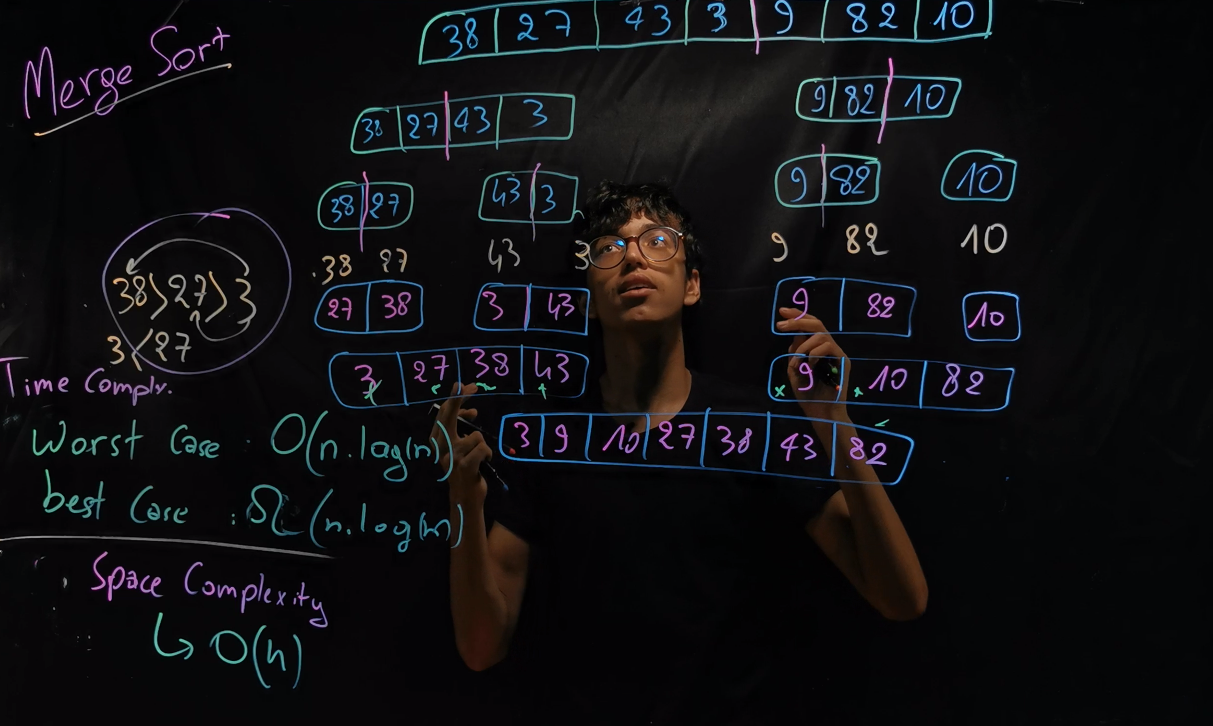 Merge Sort
38 27 43 3 9 82 10
38 27 43 3
9 82 10
38 27
43 3
9 82
10
.38 27 43 3 9 82 10
38>27>3
3<27
27 38
3 43
9 82
10
3 27 38 43
9 10 82
3 9 10 27 38 43 82
Time Complx.
Worst Case : O(n.log(n)
best Case : Ω(n.log(n)
. Space Complexity
↳ O(n)